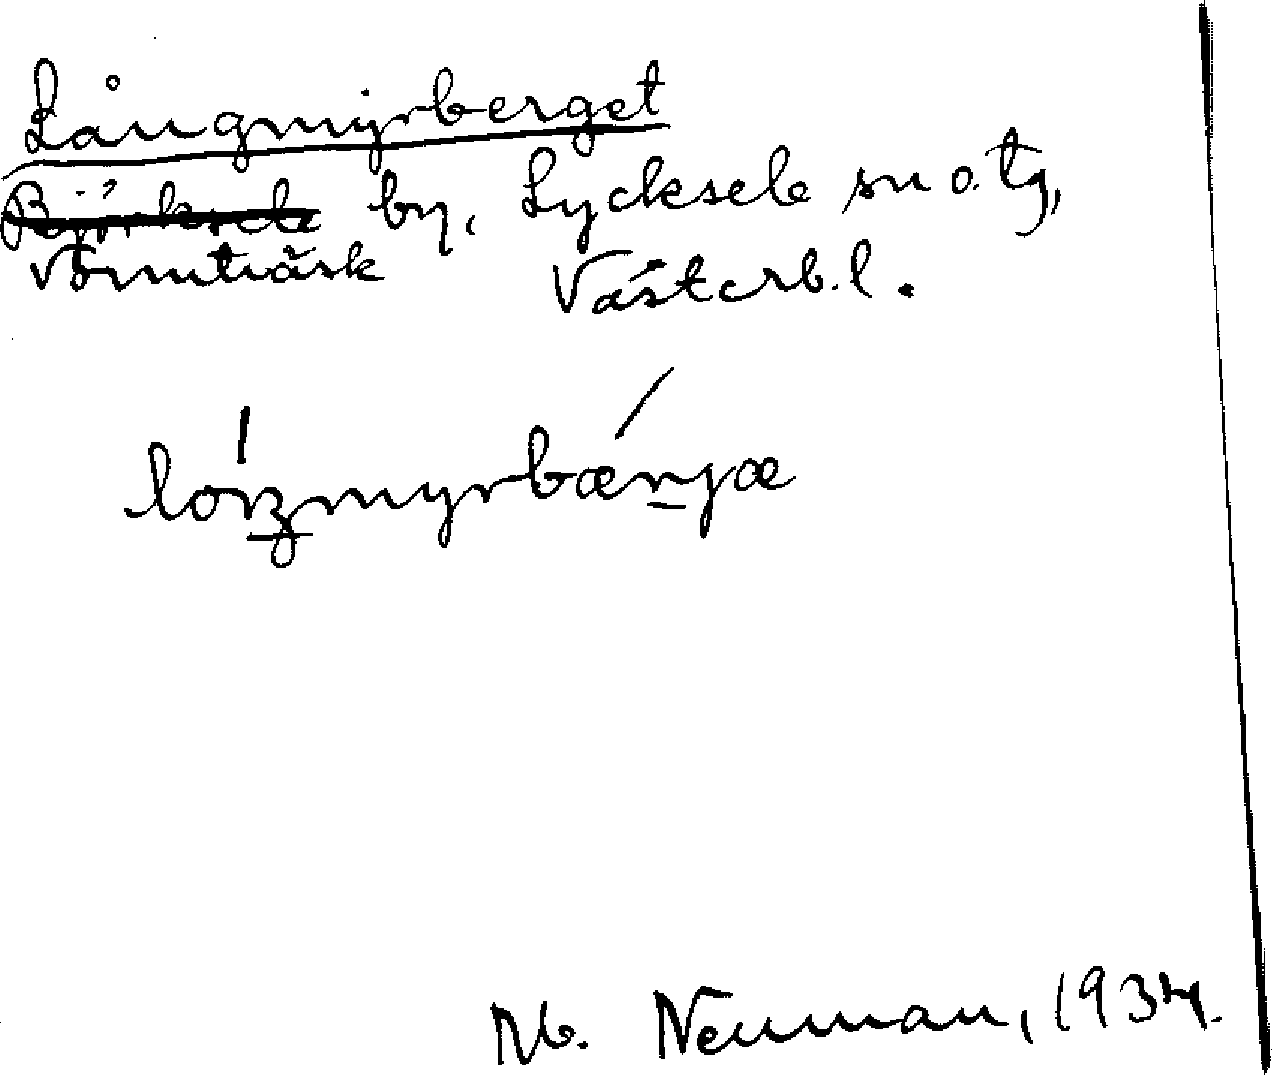 Långmyrberget
Björksele by, Lycksele sn o. tg,
Vormträsk Västerb. l.
M. Neuman, 1934.